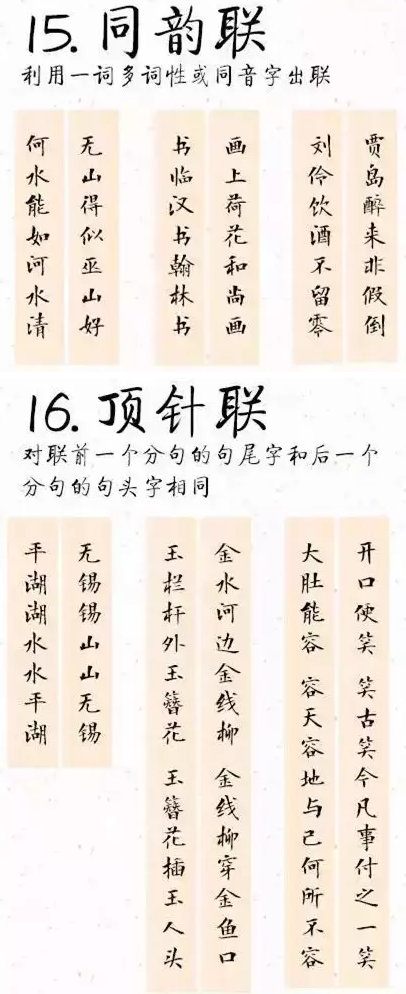 15. 同韵联
利用一词多词性或同音字出联
贾岛醉来非假倒
刘伶饮酒不留零
画上荷花和尚画
书临汉书翰林书
无山得似巫山好
何水能如河水清
16. 顶针联
对联前一个分句的句尾字和后一个
分句的句头字相同
开口便笑 笑古笑今凡事付之一笑
大肚能容 容天容地与己何所不容
金水河边金线柳 金线柳穿金鱼口
玉栏杆外玉簪花 玉簪花插玉人头
无锡锡山山无锡
平湖湖水水平湖